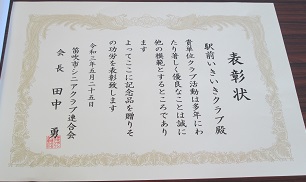 表彰状
駅前いきいきクラブ殿
貴単位クラブ活動は多年にわ
たり著しく優良なことは誠に
他の模範とするところであり
ます
よってここに記念品を贈りそ
の功労を表彰致します
令和三年五月二十五日
笛吹市シニアクラブ連合会
会長 田中 勇